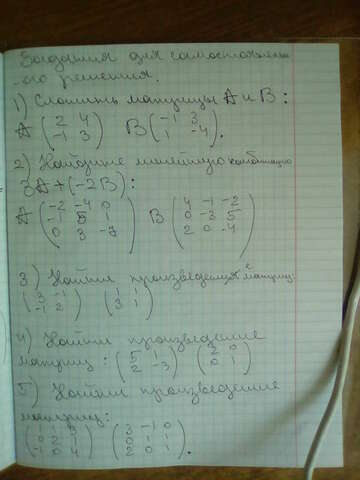 Задания для самостоятельн
-ого решения.
1) Сложить матрицы А и В:
A ( 2 4 ) B ( -1 3 )
( -1 3 ) ( 1 -4 ).
2) Найдите линейную комбинацию
3A+(-2B):
A ( -2 -4 0 ) B ( 4 -1 -2 )
( -1 5 1 ) ( 0 -3 5 )
( 0 3 -7 ) ( 2 0 -4 )
3) Найти произведения матриц:
( 3 -1 ) ( 1 1 )
( -1 2 ) ( 3 1 )
4) Найти произведение
матриц: ( 5 1 ) ( 2 0 )
( 2 -3 ) ( 0 1 )
5) Найти произведение
матриц:
( 1 1 3 ) ( 3 -1 0 )
( 0 2 1 ) ( 0 1 1 )
( -1 0 4 ) ( 2 0 1 ).